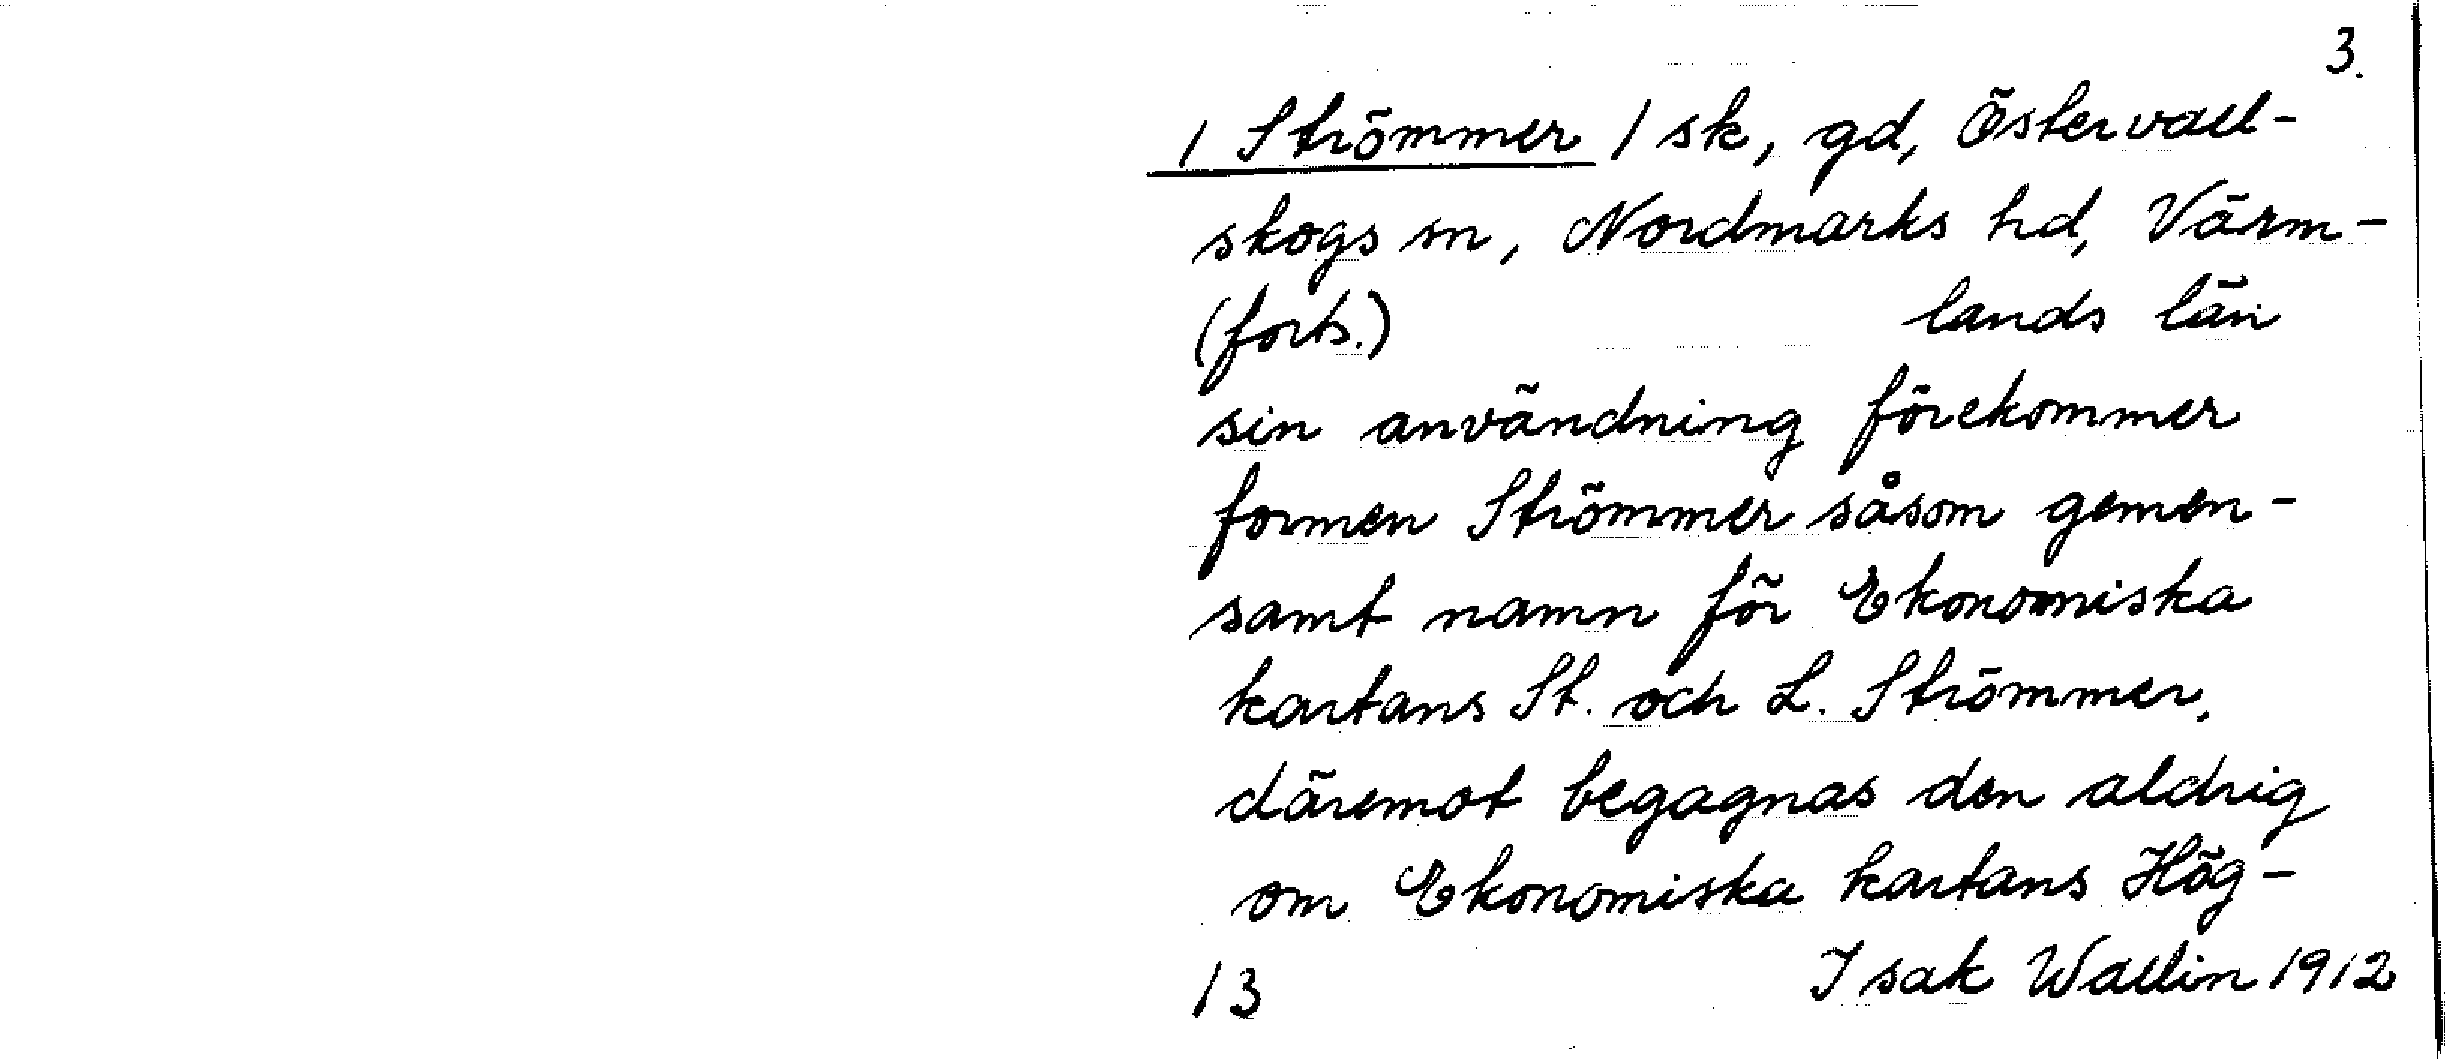 3.
/ Strömmer / sk, gd, Östervall-
skogs sn, Nordmarks hd, Värm-
(forts.) lands län
sin användning förekommer
formen Strömmer såsom gemen-
samt namn för Ekonomiska
kartans St. och L. Strömmer,
däremot begagnas den aldrig
om Ekonomiska kartans Hög-
13 Isak Wallin 1912